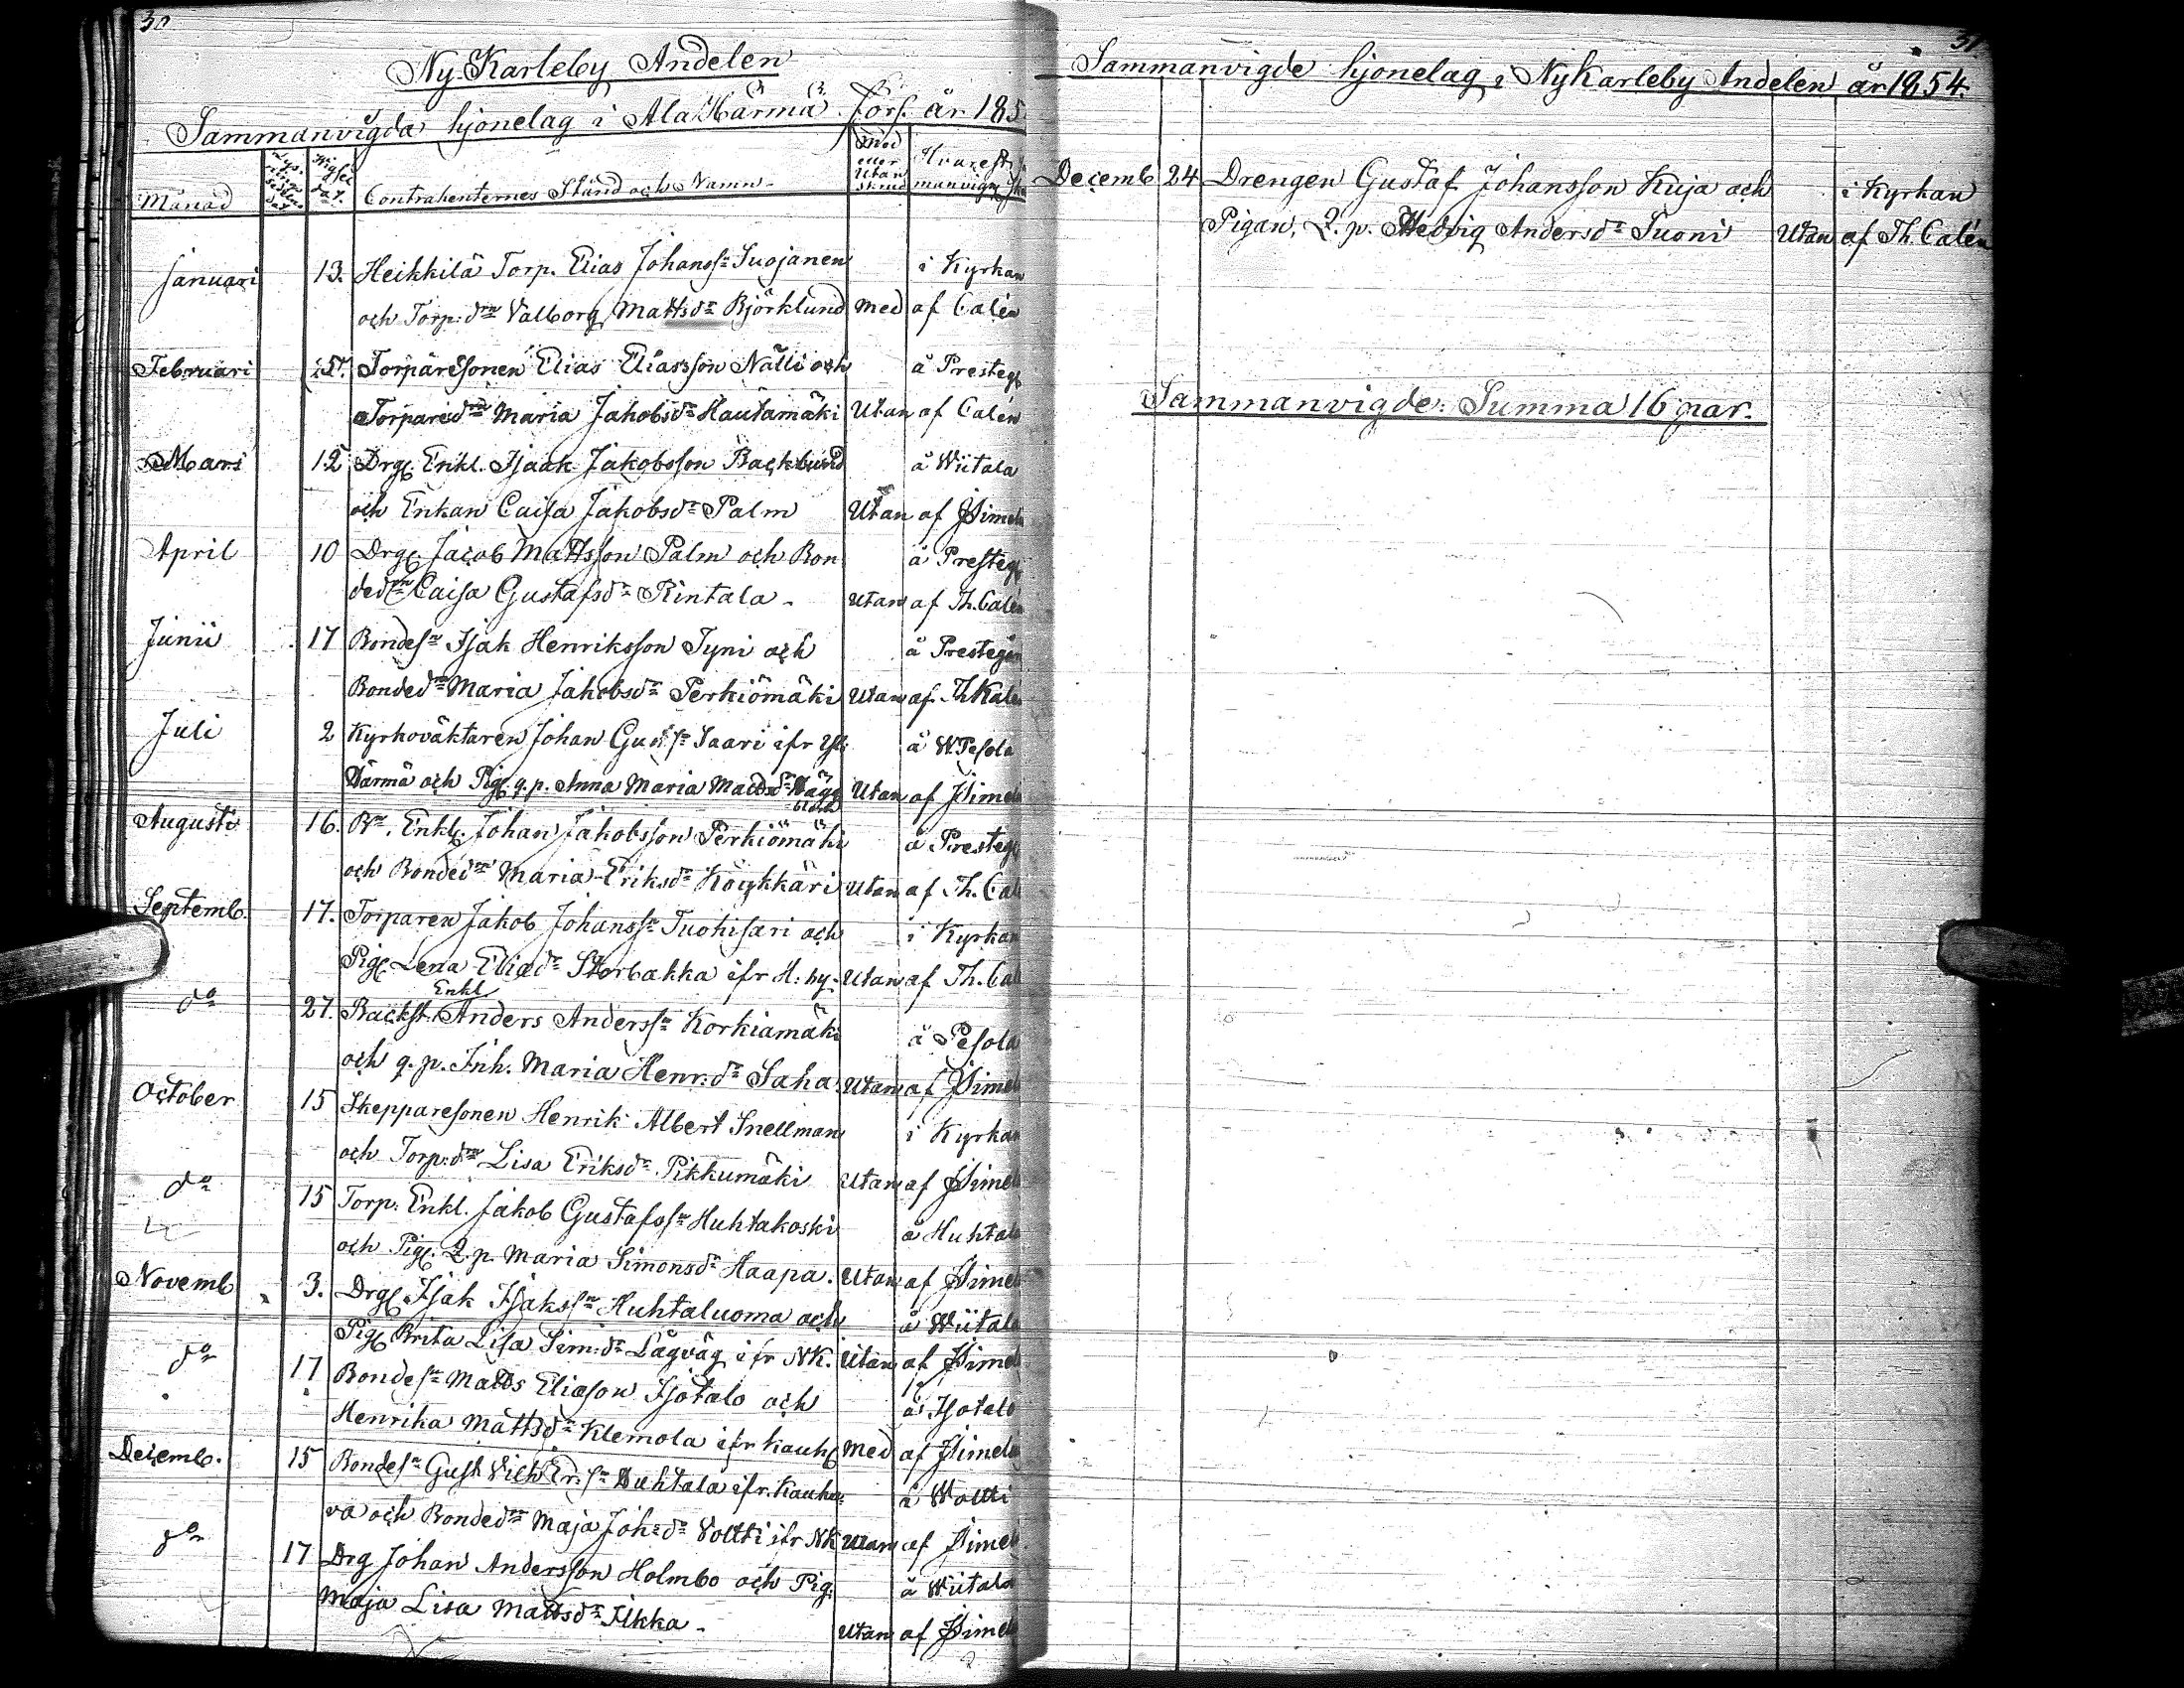 30
Ny-Karleby Andelen
Sammanvigda hjonelag i Ala Härmä förs. år 185
Månad Contrahenternes Stånd och Namn Med eller Utan skrud
Januari 13. Heikkilä Torp. Elias Johanss:n Suojanen i Kyrkan
och Torp:d:rn Valborg Mattsd:r Björklund med af Calén
Februari Torparesonen Elias Eliasson Nälli och å Presteg
Torpared:rn Maria Jakobsd:r Hautamäki Utan af Calén
Mars 12 Drg. Enkl. Isaak Jakobsson Backlund å Wiitala
och Enkan Caisa Jakobsd:r Palm Utan af Simel
April 10 Drg. Jacob Mattsson Palm och Bon å Presteg
ded:rn Caisa Gustafsd:r Rintala - Utan af Th. Calén
Junii 17 Bondes:n Isak Henriksson Tyni och å Prestegå
Bonded:rn Maria Jakobsd:r Perkiömäki Utan af Th Kalé
Juli 2 Kyrkoväktaren Johan Gusts:n Saari ifr Yli å W Pesola
Härmä och Pig. q.p. Anna Maria Mattsd:r Utan af Simel
Augusti 16. B:n, Enkl. Johan Jakobsson Perkiömäki å Presteg
och Bonded:rn Maria Eriksd:r Köykkäri Utan af Th. Cal
Septemb. 17. Torparen Jakob Johanss:n Tuohisari och i Kyrkan
Pig. Lena Eliæd:r Storbakka ifr H: by. Utan af Th. Cal
d:o 27. Backst. Enkl Anders Anderss:n Korkiamäki å Pesola
och q. p. Inh. Maria Henr:d:r Saha Utan af Simel
October 15 Skepparesonen Henrik Albert Snellman i Kyrkan
och Torp:d:rn Lisa Eriksd:r Pikkumäki Utan af Simel
d:o 15 Torp. Enkl. Jakob Gustafss:n Huhtakoski å Huhtal
och Pig. Q. p. Maria Simonsd:r Haapa. Utan af Simel
Novemb 3. Drg. Isak Isakss:n Huhtaluoma och å Wiitala
Pig. Brita Lisa Sim:d:r Lågväg ifr NK. Utan af Simel
d:o 17 Bondes:n Matts Eliæson Isotalo och å Isotalo
Henrika Mattsd:r Klemola ifr Kauh. Med af Simel
Decemb. 15 Bondes:n Gust. Vilh Er:s:n Huhtala ifr. Kauha å Woltti
va och Bonded:rn Maja Joh:d:r Voltti ifr NK Utan af Simel
d:o 17 Drg Johan Andersson Holmbo och Pig. å Wiitala
Maja Lisa Mattsd:r Ilkka - Utan af Simel
31
Sammanvigde hjonelag i NyKarleby Andelen år 1854.
Decemb 24 Drengen Gustaf Johansson Kuja och i Kyrkan
Pigan, Q. p. Hedvig Andersd:r Suoni Utan af Th. Calén
Sammanvigde: Summa 16 par.